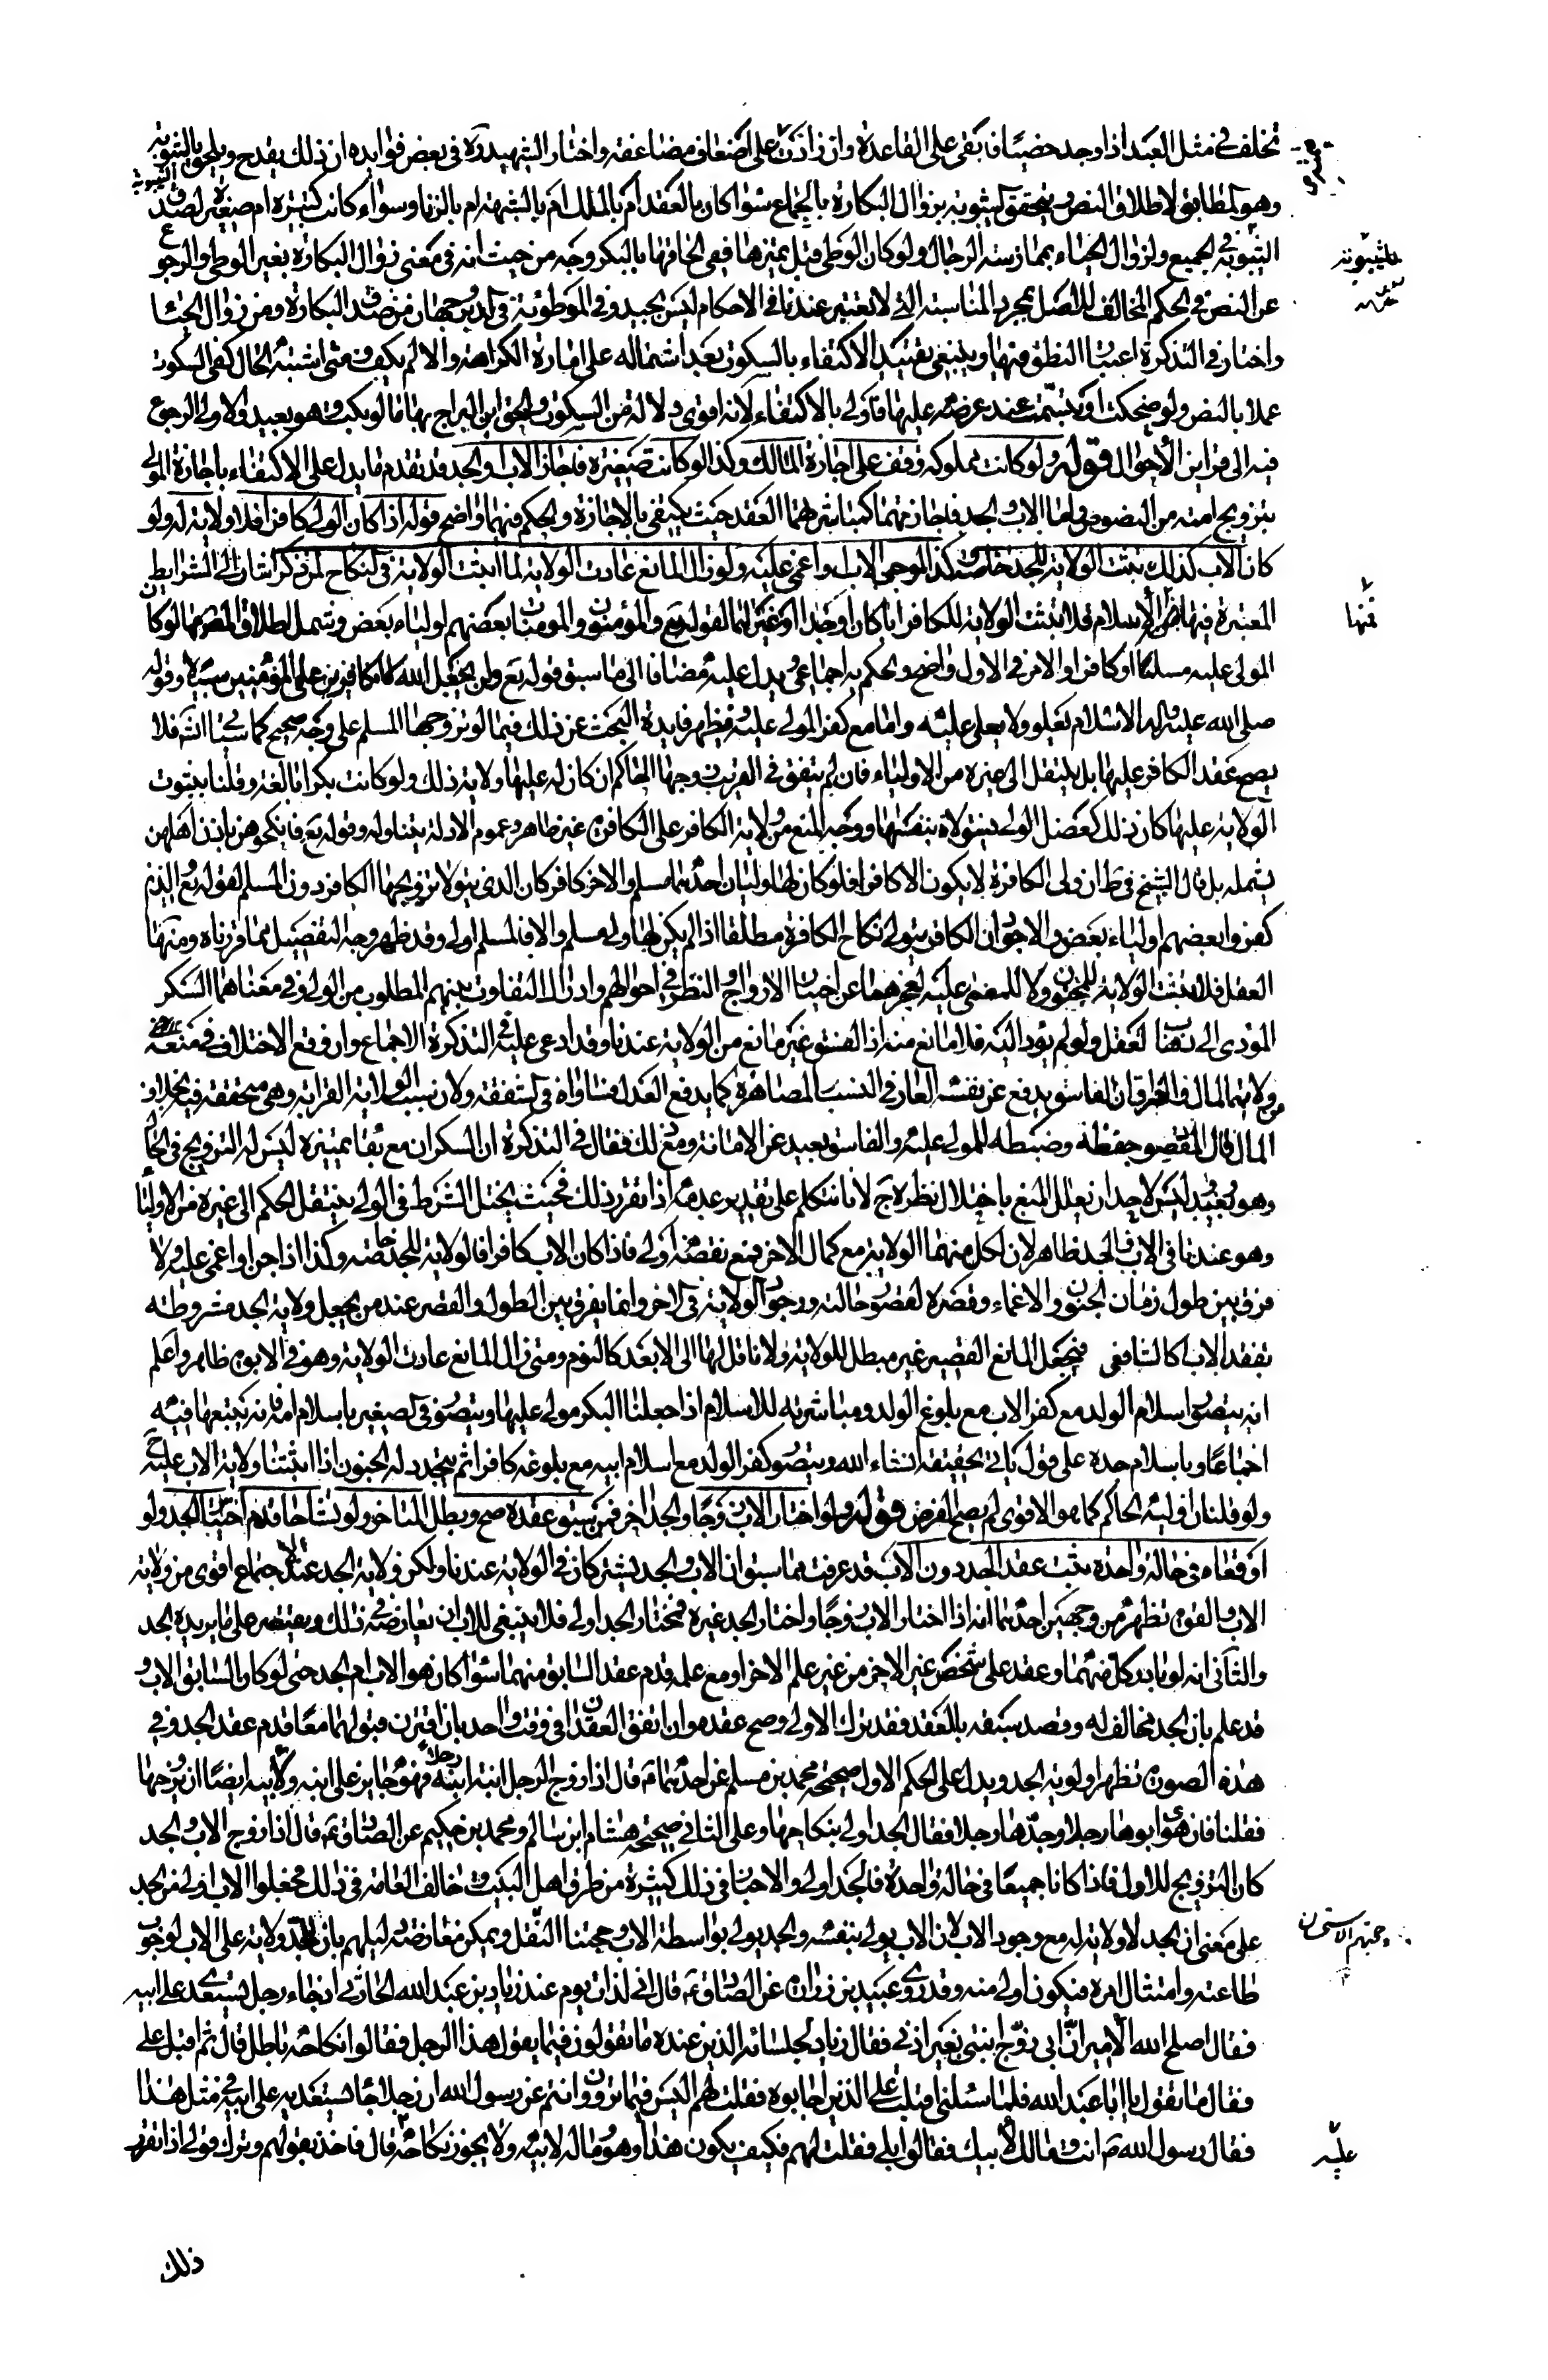 تخلف في مثل العبد اذا وجد خصيا فابقى على القاعدة وان زادت على اضعاف مضاعفة واختار الشهيد ره في بعض فوايده ان ذلك يقدح ويلحق بالثيوبة
وهو مطابق لاطلاق النص ويتحقق الثيوبة بزوال البكارة بالجماع سواء كان بالعقد ام بالملك ام بالشبهة ام بالزنا وسواء كانت كبيرة ام صغيرة لصدق الثيوبة
الثيوبة في الجميع ولزوال الحياء بممارسة الرجال ولو كان الوطى قبل تميزها ففي الحاقها بالبكر وجه من حيث انه في معنى زوال البكارة بغير الوطى والرجوع
عن النص في الحكم المخالف للاصل بمجرد المناسبة التي لا تعتبر عندنا في الاحكام ليس بجيد وفي الموطوئة في الدبر وجهان من صدق البكارة ومن زوال الحياء
واختار في التذكرة اعتبار النطق فيها وينبغي تقييد الاكتفاء بالسكوت بعدم اشتماله على امارة الكراهة والا لم يكف ومتى اشتبه الحال كفى السكوت
عملا بالنص ولو ضحكت او تبسمت عند عرضه عليها فاولى بالاكتفاء لانه اقوى دلالة من السكوت والحق ابن البراج بهما ما لو بكت وهو بعيد والاولى الرجوع
فيه الى قراين الاحوال قوله ولو كانت مملوكة وقف على اجازة المالك وكذا لو كانت صغيرة فاجاز الاب او الجد قد تقدم ما يدل على الاكتفاء باجازة المولى
بتزويج امته من النصوص واما الاب والجد فاجازتهما كمباشرتهما العقد حيث يكتفى بالاجازة والحكم فيهما واضح قوله اذا كان الولي كافرا فلا ولاية له ولو
كان الاب كذلك ثبتت الولاية للجد خاصة وكذا لو جن الاب او اغمى عليه ولو زال المانع عادت الولاية لما اثبت الولاية في النكاح لمن ذكر اشار الى الشرايط
المعتبرة فيها فمنها الاسلام فلا تثبت الولاية للكافر ابا كان او جدا او غيرهما لقوله تع والمؤمنون والمؤمنات بعضهم اولياء بعض وشمل اطلاق المصنف ما لو كان
المولى عليه مسلما او كافرا والامر في الاول واضح والحكم به اجماعي ويدل عليه مضافا الى ما سبق قوله تع ولن يجعل الله للكافرين على المؤمنين سبيلا وقوله
صلى الله عليه واله الاسلام يعلو ولا يعلى عليه واما مع كفر المولى عليه فيظهر فايدة البحث عن ذلك فيما لو تزوجها المسلم على وجه صحيح كما سيأتي انشه فلا
يصح عقد الكافر عليها بل ينتقل الى غيره من الاولياء فان لم يتفق في القريب زوجها الحاكم ان كان له عليها ولاية ذلك ولو كانت بكرا بالغة وقلنا بثبوت
الولاية عليها كان ذلك كعضل الولي يستولاه بنفسها ووجه المنع من ولاية الكافر على الكافرة غير ظاهر وعموم الادلة يتناوله وقوله تع فانكحوهن باذن اهلهن
يشمله بل قال الشيخ في ط ان ولي الكافرة لا يكون الا كافرا فلو كان لها وليان احدهما مسلم والاخر كافر كان الذي يتولا تزويجها الكافر دون المسلم لقوله تع الذين
كفروا بعضهم اولياء بعض والاجود ان الكافر يتولى نكاح الكافرة مطلقا اذا لم يكن لها ولي مسلم والا فالمسلم اولى وقد ظهر وجه التفصيل مما قررناه ومنها
العقل فلا تثبت الولاية للمجنون ولا للمغمى عليه لعجزهما عن اختيار الازواج والنظر في احوالهم وادراك التفاوت بينهم المطلوب من الولي وفي معناهما السكر
المؤدي الى ذهاب العقل ولو لم يؤد اليه فلا مانع منه اذ الفسق غير مانع من الولاية عندنا وقد ادعى عليه في التذكرة الاجماع وان وقع الاختلاف في منعه
من ولاية المال والفرق ان الفاسق يدفع عن نفسه العار في النسب المصاهرة كما يدفع العدل فتساواه في الشفقة ولان سبب الولاية القرابة وهي متحققة فيه بخلاف
المال فان المقصود حفظه وضبطه للمولى عليه والفاسق بعيد عن الامانة ومع ذلك فقال في التذكرة ان السكران مع بقاء تميزه ليس له التزويج في الحال
وهو بعيد وليس لاحد ان يعلل المنع باختلال نظره ح لانا نتكلم على تقدير عدمه اذا تقرر ذلك فحيث يختل الشرط في الولي ينتقل الحكم الى غيره من الاولياء
وهو عندنا في الاب والجد ظاهر لان لكل منهما الولاية مع كمال الاخر فمع نقصه اولى فاذا كان الاب كافرا فالولاية للجد خاصة وكذا اذا جن او اغمى عليه ولا
فرق بين طول زمان الجنون والاغماء وقصره لقصور حالته ووجود الولاية في الاخر وانما يفرق بين الطول والقصر عند من يجعل ولاية الجد مشروطة
بفقد الاب كالشافعي فيجعل المانع القصير غير مبطل للولاية ولا ناقل لها الى الابعد كالنوم ومتى زال المانع عادت الولاية وهو في الابوين ظاهر واعلم
انه يتصور اسلام الولد مع كفر الاب مع بلوغ الولد ومباشرته للاسلام اذا جعلنا البكر مولى عليها ويتصور في الصغير باسلام امه فانه يتبعها فيه
اجماعا وباسلام جده على قول ياتي تحقيقه انشاء الله ويتصور كفر الولد مع اسلام ابيه مع بلوغه كافرا ثم يتجدد له الجنون اذا اثبتنا ولاية الاب عليه ح
ولو قلنا ان وليه الحاكم كما هو الاقوى لم يصح الفرض قوله ولو اختار الاب زوجا والجد اخر فمن سبق عقده صح وبطل المتاخر ولو تشاحا قدم اختيار الجد ولو
اوقعاه في حالة واحدة ثبت عقد الجد دون الاب قد عرفت مما سبق ان الاب والجد يشتركان في الولاية عندنا ولكن ولاية الجد عند الاجتماع اقوى من ولاية
الاب والقوة تظهر من وجهين احدهما انه اذا اختار الاب زوجا واختار الجد غيره فمختار الجد اولى فلا ينبغي للاب ان يعارضه في ذلك ويقتصر على ما يريده الجد
والثاني انه لو بادر كل منهما وعقد على شخص غير الاخر من غير علم الاخر او مع علمه قدم عقد السابق منهما سواء كان هو الاب ام الجد حتى لو كان السابق الاب و
قد علم بان الجد مخالف له وقصد سبقه بالعقد فقد ترك الاولى وصح عقده وان اتفق العقدان في وقت واحد بان اقترن قبولهما معا قدم عقد الجد وفي
هذه الصورة تظهر اولوية الجد ويدل على الحكم الاول صحيحة محمد بن مسلم عن احدهما ع قال اذا زوج الرجل ابنة ابنه رجلا فهو جايز على ابنه ولابيه ايضا ان يزوجها
فقلنا فان هوى ابوها رجلا وجدها رجلا فقال الجد اولى بنكاحها وعلى الثاني صحيحة هشام ابن سالم ومحمد بن حكيم عن الصادق ع قال اذا زوج الاب والجد
كان التزويج للاول فاذا كانا جميعا في حالة واحدة فالجد اولى والاخبار في ذلك كثيرة من طرق اهل البيت وخالف العامة في ذلك فجعلوا الاب اولى من الجد
على معنى ان الجد لا ولاية له مع وجود الاب لان الاب يولي بنفسه والجد يولي بواسطة الاب وحجتنا النقل ويمكن معارضة دليلهم بان للجد ولاية على الاب لوجوب
طاعته وامتثال امره فيكون اولى منه وقد روى عبيد بن زرارة عن الصادق ع قال اني لذات يوم عند زياد بن عبد الله الحارثي اذ جاء رجل يستعدي على ابيه
فقال اصلح الله الامير ان ابي زوج ابنتي بغير اذني فقال زياد لجلسائه الذين عنده ما تقولون فيما يقول هذا الرجل فقالوا نكاحه باطل قال ثم اقبل علي
فقال ما تقول يا ابا عبد الله فلما سئلني اقبلت على الذين اجابوه فقلت لهم اليس فيما تروون وانتم عن رسول الله ان رجلا جاء يستعديه على ابيه في مثل هذا
فقال رسول الله ص انت ومالك لابيك فقالوا بلى فقلت لهم فكيف يكون هذا وهو وماله لابيه ولا يجوز نكاحه قال فاخذ بقولهم وترك قولي اذا تقرر
بالثيوبة
فمنها
وحجتهم الاستحسان
عليه
ذلك